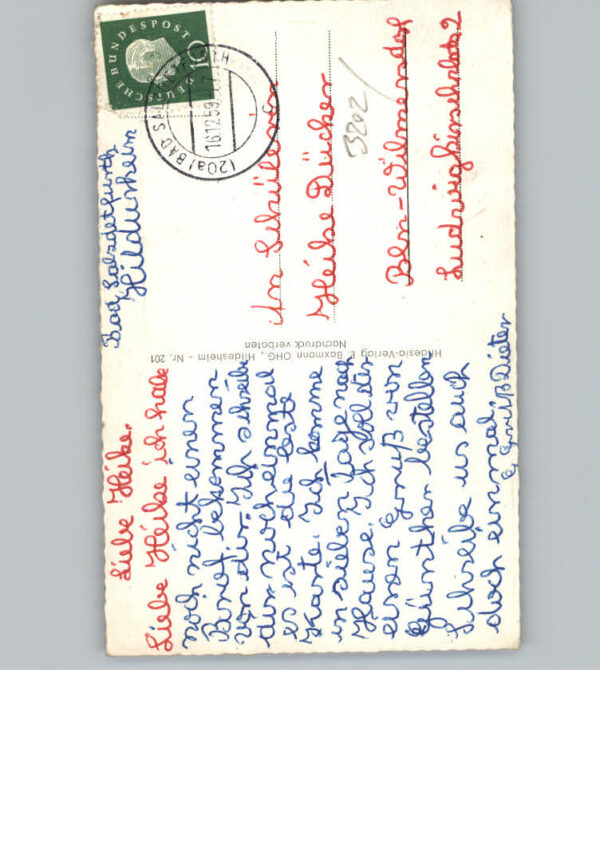 Liebe Heike.
Liebe Heike ich habe
noch nicht einen
Brief bekommen
von dir. Ich schreibe
dir nocheinmal
es ist die leste
Karte. Ich komme
in sieben Tage nach
Hause. Ich soll dir
einen Gruß von
Günther bestellen
Schreibe us auch
doch einmal.
Gruß Dieter
Bad Salzdetfurth
Hildesheim
DEUTSCHE BUNDESPOST
10
(20a) BAD SALZDETFURTH
16.12.59
c
An Schülerin
Heike Dücker
3202/
Bln-Wilmersdorf
Ludwigkirchplatz 2
Hildesia-Verlag E. Baxmann OHG., Hildesheim - Nr. 201
Nachdruck verboten